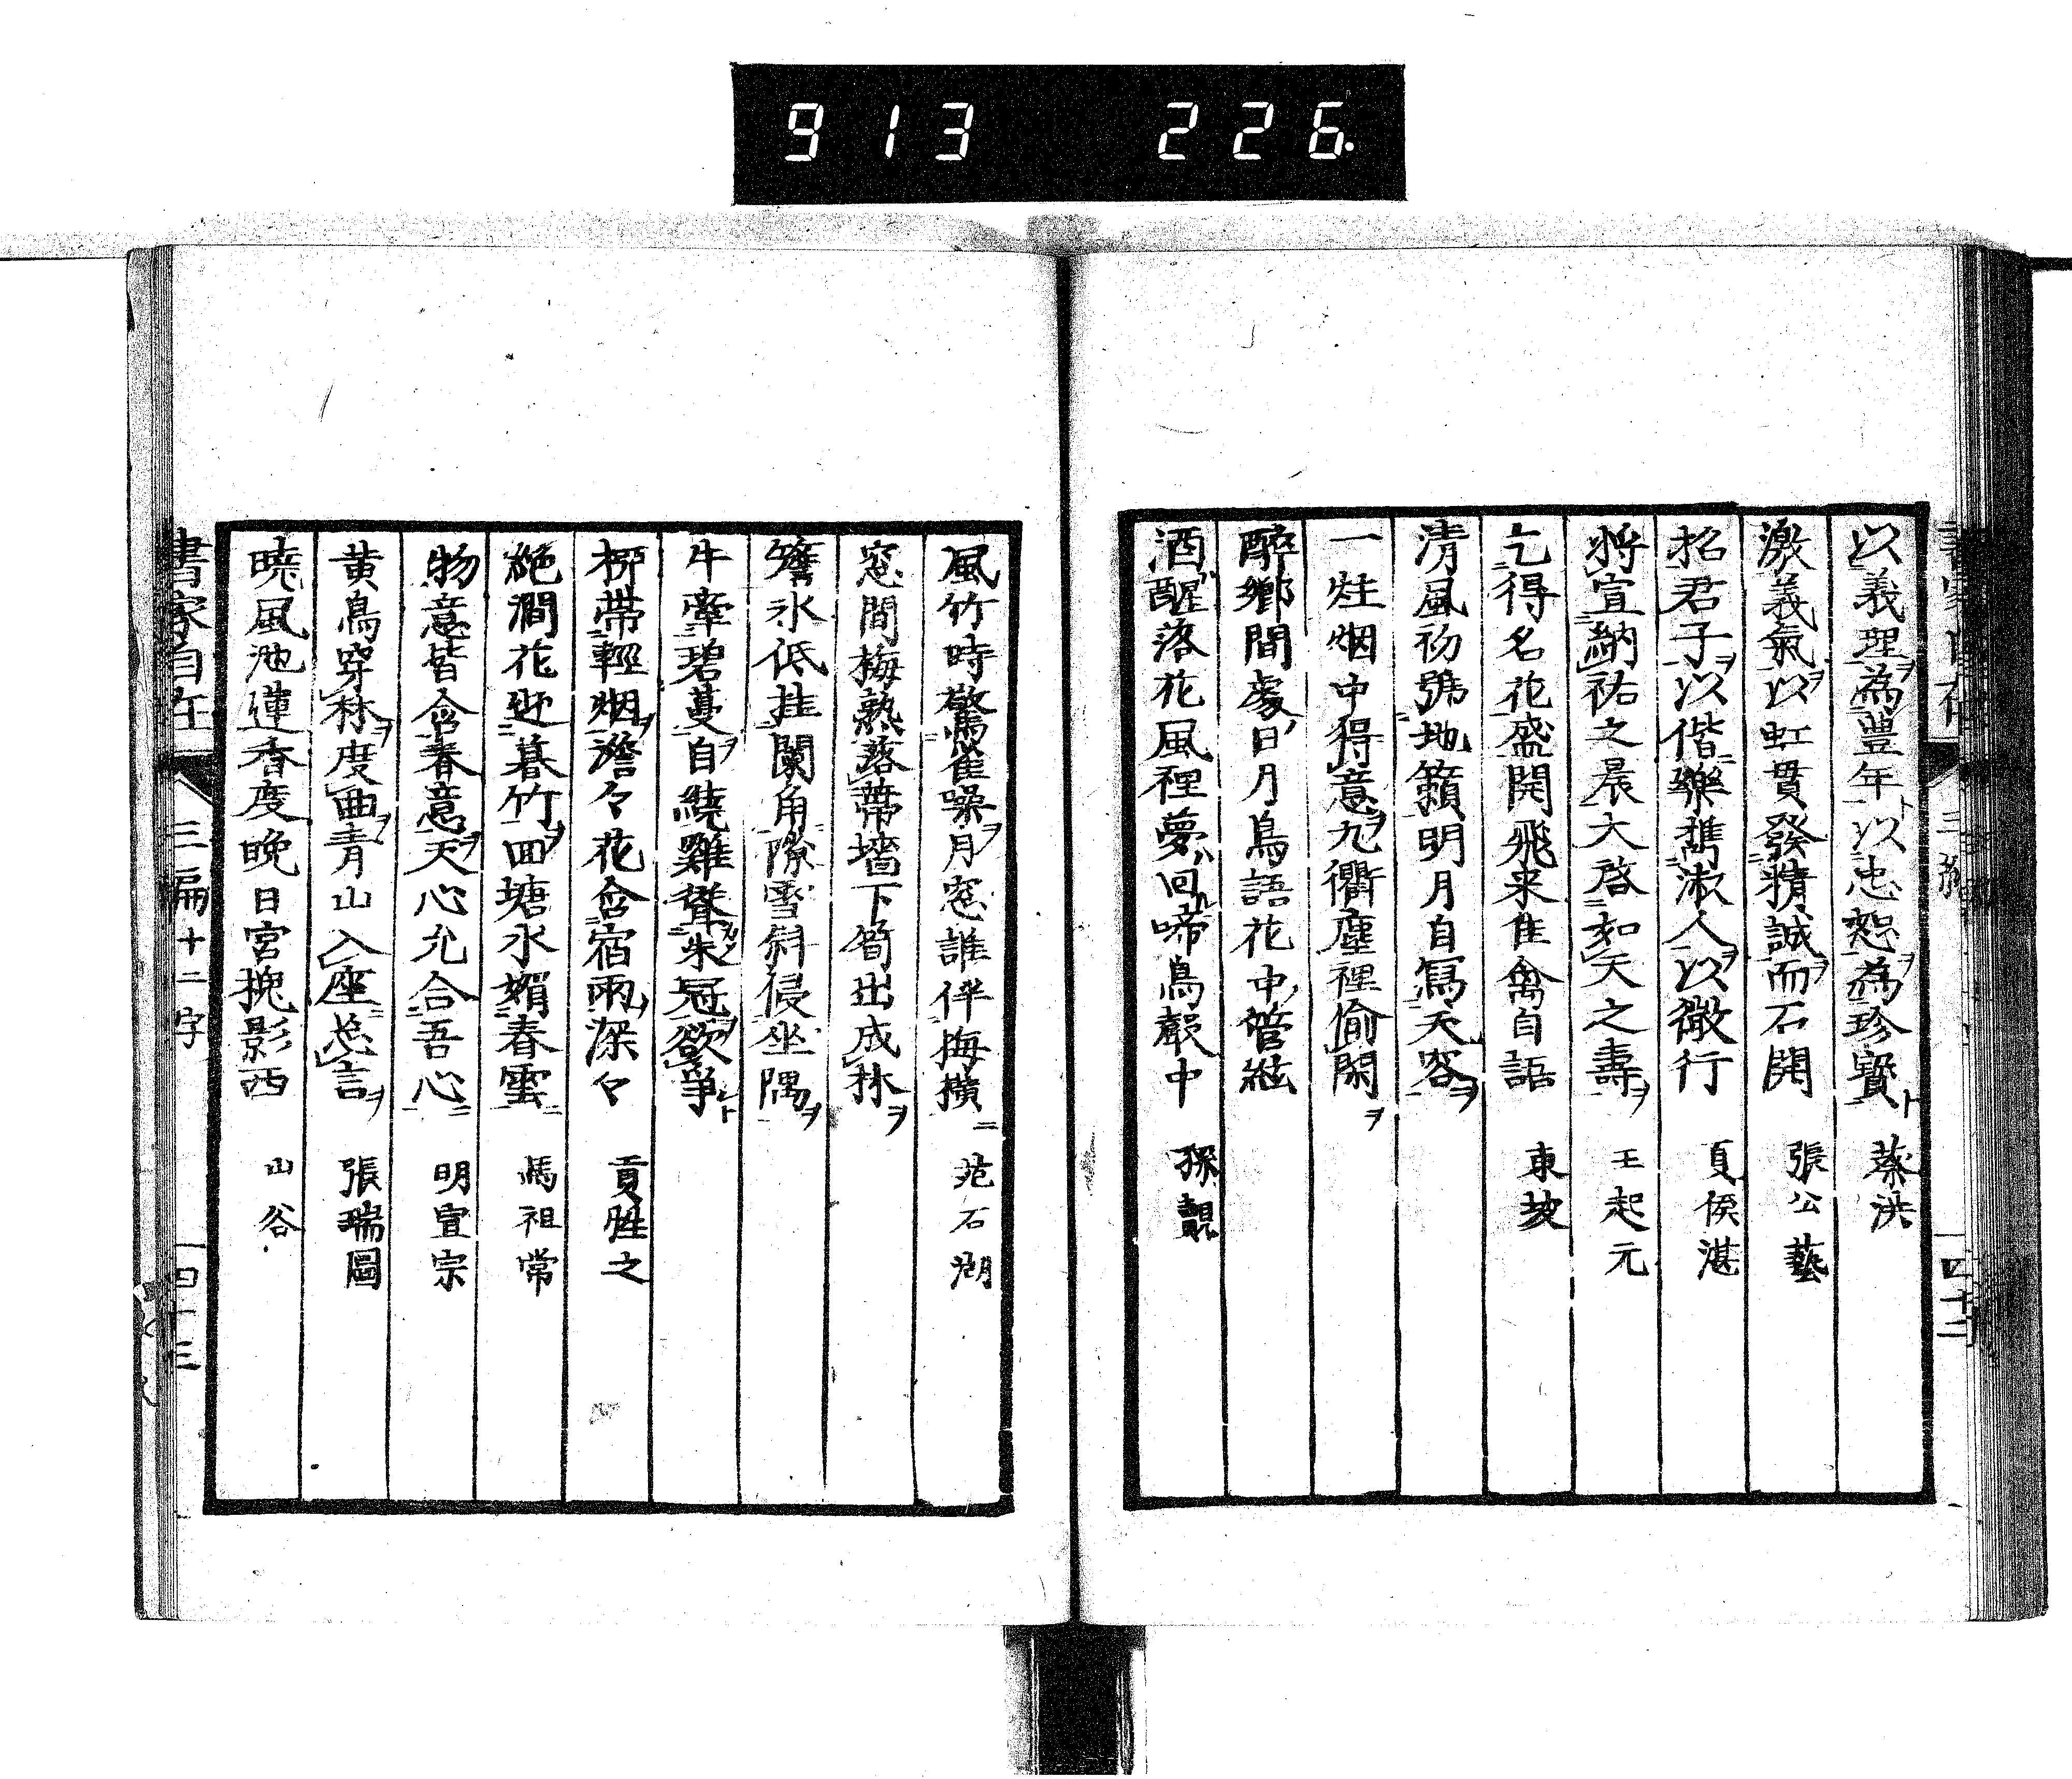 913 226.
以義理為豊年以忠恕為珍寳 蔡洪
激義氣以虹貫發精誠而石開 張公藝
招君子以偕樂攜淑人以微行 夏侯湛
将宣納祐之晨大啓如天之壽 王起元
乞得名花盛開飛来隹禽自語 東坡
清風初號地籟明月自寫天容
一炷烟中得意九衢塵裡偷閑
醉鄉間處日月鳥語花中管絃
酒醒落花風裡夢回啼鳥聲中 孫覿
風竹時驚雀噪月窓誰伴梅横 范石湖
窓間梅熟落蒂墻下筍出成林
簷氷低挂闌角隙雪斜侵坐隅
牛牽碧蔓自繞雞聳朱冠欲爭
栁帯輕烟澹々花含宿雨深々 貢性之
絶澗花迎暮竹回塘水媚春雲 馬祖常
物意皆含春意天心允合吾心 明宣宗
黄鳥穿林度曲青山入座忘言 張瑞圖
曉風池蓮香度晩日宮槐影西 山谷
書家自在 三編 十二字 四十三